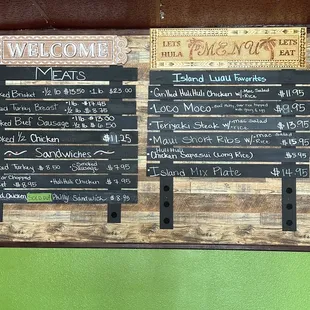 WELCOME
MEATS
ked Brisket • 1/2 lb $13.50 • 1 lb. $25.00
• 1 lb. $17.45
ed Turkey Breast • 1/2 lb. $8.25
ked Beef Sausage • 1/2 lb. $6.50
oked 1/2 Chicken $11.25
Sandwiches
ed Turkey $8.50 • Smoked Sausage $7.95
or Chopped
et $8.95 • Huli Huli Chicken $7.95
d Chicken Philly Sandwich $8.95
LETS HULA MENU LETS EAT
Island Luau Favorites
• Grilled Huli Huli Chicken w/ Mac Salad Rice $11.95
• Loco Moco $9.95
• Teriyaki Steak w/ mac salad rice $13.95
• Maui Short Ribs w/ mac salad rice $13.95
• Huli Huli
Chicken Sapasui (Long Rice) $9.95
• Island Mix Plate $14.95